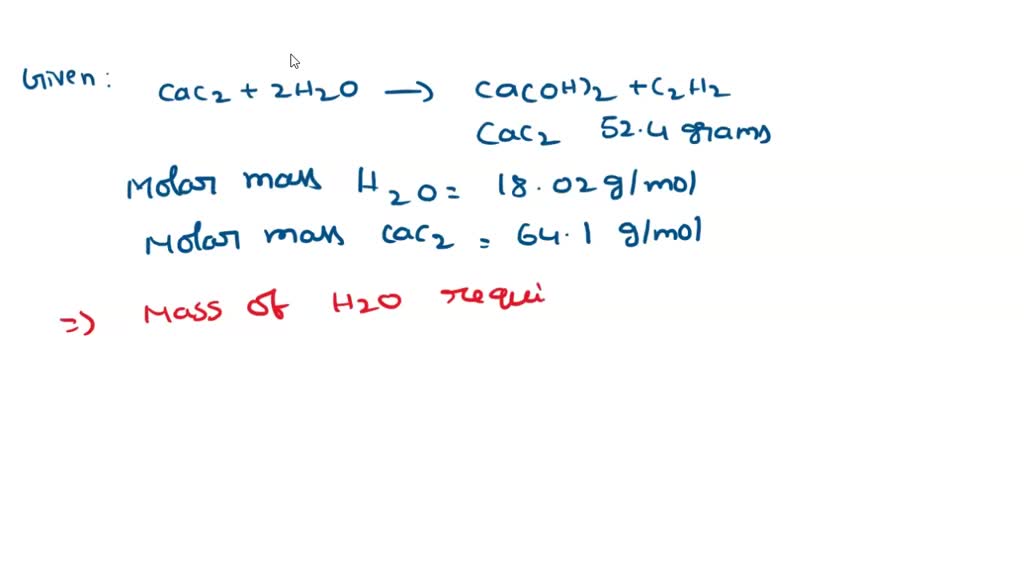 Given: CaC2 + 2H2O → Ca(OH)2 + C2H2
CaC2 52.4 grams
Molar mass H2O = 18.02 g/mol
Molar mass CaC2 = 64.1 g/mol
=> Mass of H2O requi